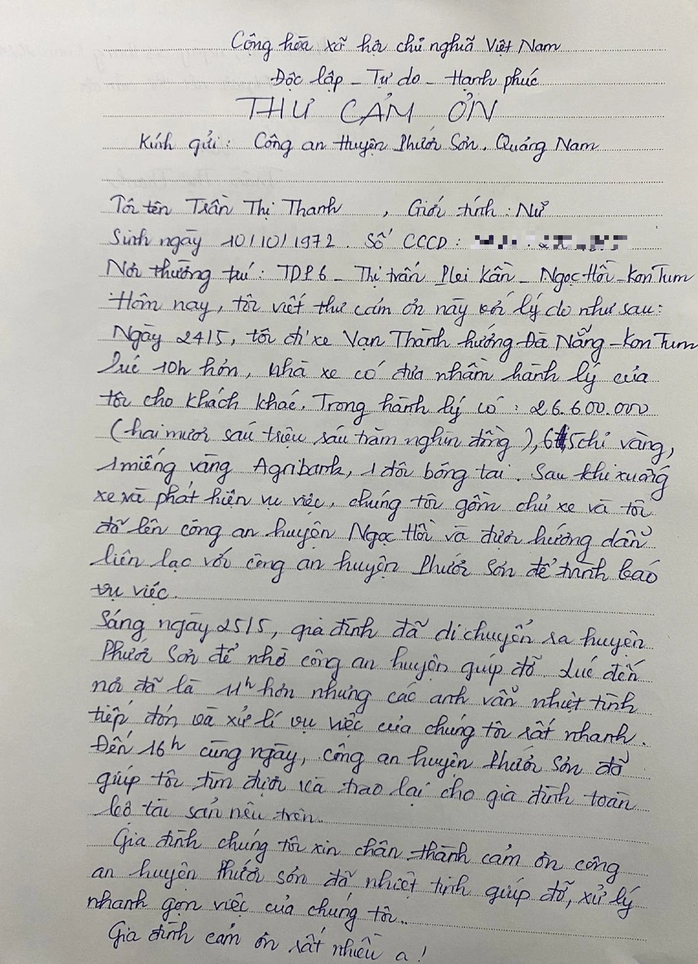 Cộng hòa xã hội chủ nghĩa Việt Nam
Độc lập - Tự do - Hạnh phúc
THƯ CẢM ƠN
Kính gửi: Công an Huyện Phước Sơn, Quảng Nam
Tôi tên Trần Thị Thanh, Giới tính: Nữ
Sinh ngày 10/10/1972. Số CCCD:
Nơi thường trú: TDP6 - Thị trấn Plei Kần - Ngọc Hồi - Kon Tum
Hôm nay, tôi viết thư cảm ơn này với lý do như sau:
Ngày 24/5, tôi đi xe Vạn Thành hướng Đà Nẵng - Kon Tum
lúc 10h hơn, nhà xe có đưa nhầm hành lý của
tôi cho khách khác. Trong hành lý có: 26.600.000
(hai mươi sáu triệu sáu trăm nghìn đồng), 5 chỉ vàng,
1 miếng vàng Agribank, 1 đôi bông tai. Sau khi xuống
xe và phát hiện vụ việc, chúng tôi gồm chủ xe và tôi
đã lên công an huyện Ngọc Hồi và được hướng dẫn
liên lạc với công an huyện Phước Sơn để trình báo
vụ việc.
Sáng ngày 25/5, gia đình đã di chuyển ra huyện
Phước Sơn để nhờ công an huyện giúp đỡ. Lúc đến
nơi đã là 11h hơn nhưng các anh vẫn nhiệt tình
tiếp đón và xử lí vụ việc của chúng tôi rất nhanh.
Đến 16h cùng ngày, công an huyện Phước Sơn đã
giúp tôi tìm được và trao lại cho gia đình toàn
bộ tài sản nêu trên.
Gia đình chúng tôi xin chân thành cảm ơn công
an huyện Phước Sơn đã nhiệt tình giúp đỡ, xử lý
nhanh gọn việc của chúng tôi..
Gia đình cảm ơn rất nhiều ạ!